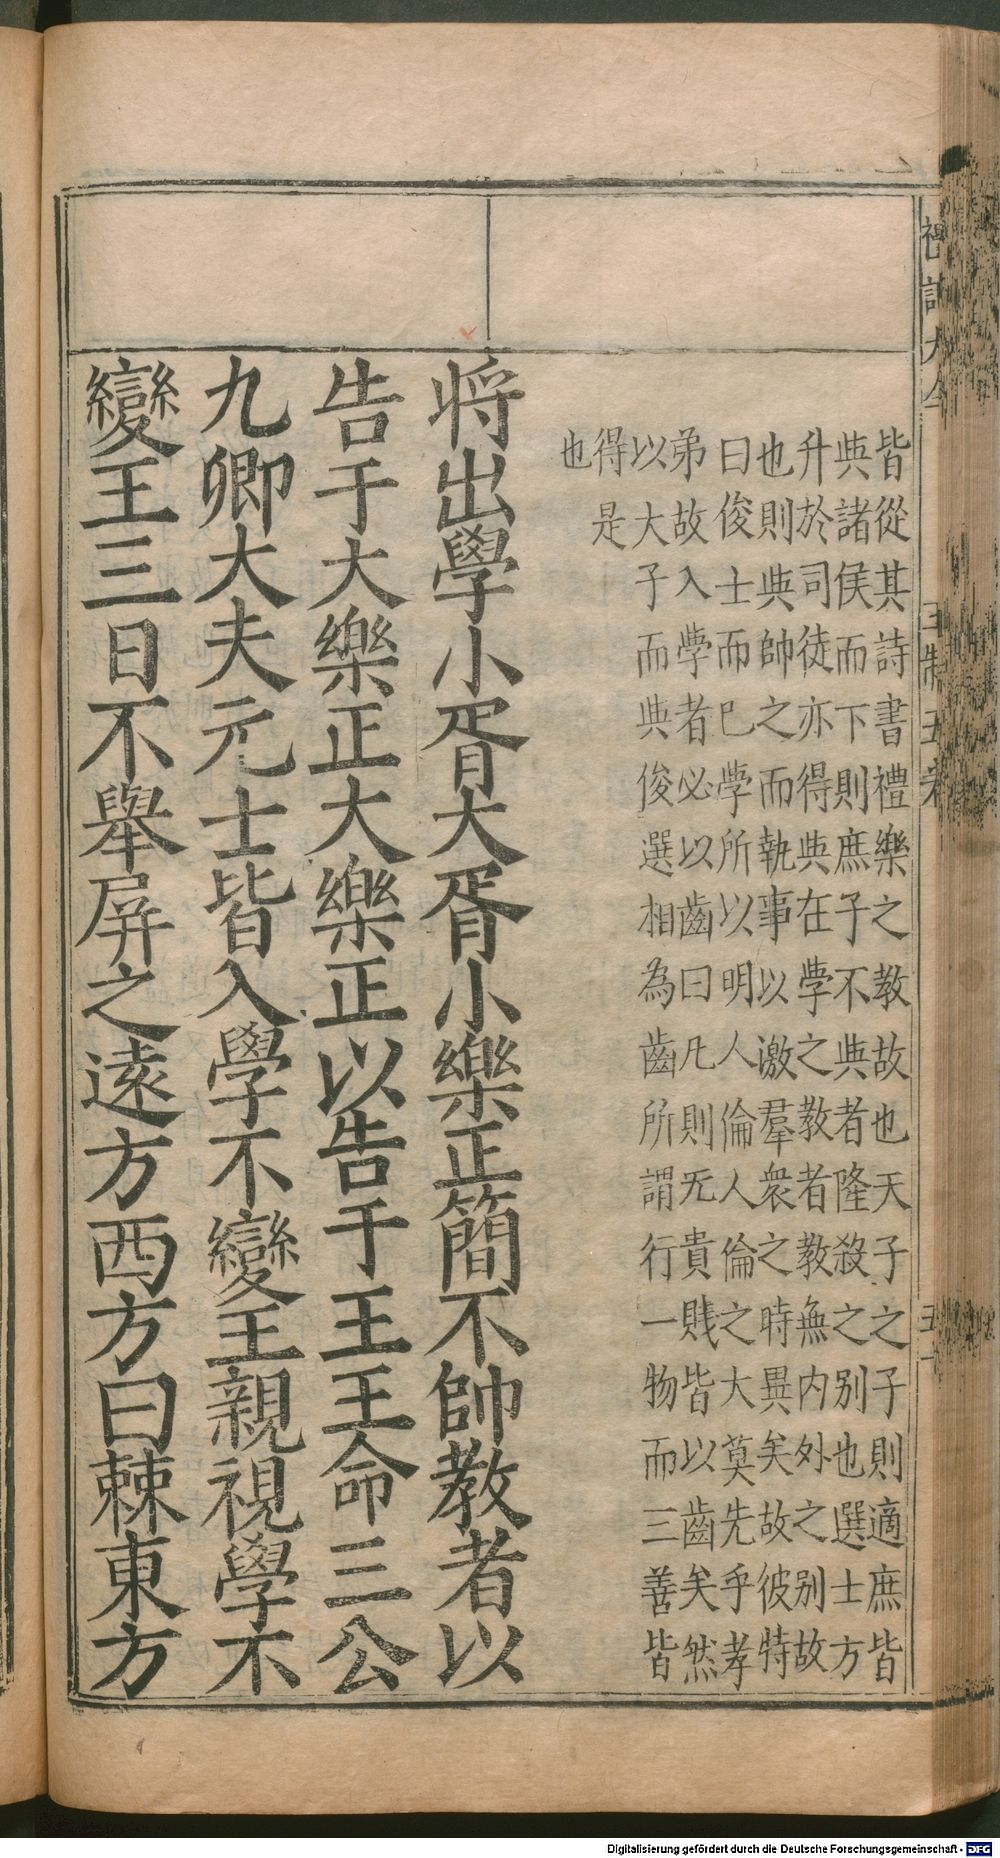 禮記大全 王制 五卷 五十
皆從其詩書禮樂之教故也天子之子則適庶皆
與諸侯而下則庶子不與者隆殺之别也選士方
升於司徒亦得與在學之教者教無内外之别故
也則與帥之而執事以激羣衆之時異矣故彼特
曰俊士而已學所以明人倫人倫之大莫先乎孝
弟故入學者必以齒曰凡則无貴賤皆以齒矣然
以大子而與俊選相為齒所謂行一物而三善皆
得是
也
將出學小胥大胥小樂正簡不帥教者以
告于大樂正大樂正以告于王王命三公
九卿大夫元士皆入學不變王親視學不
變王三日不舉屏之遠方西方曰棘東方
Digitalisierung gefördert durch die Deutsche Forschungsgemeinschaft - DFG